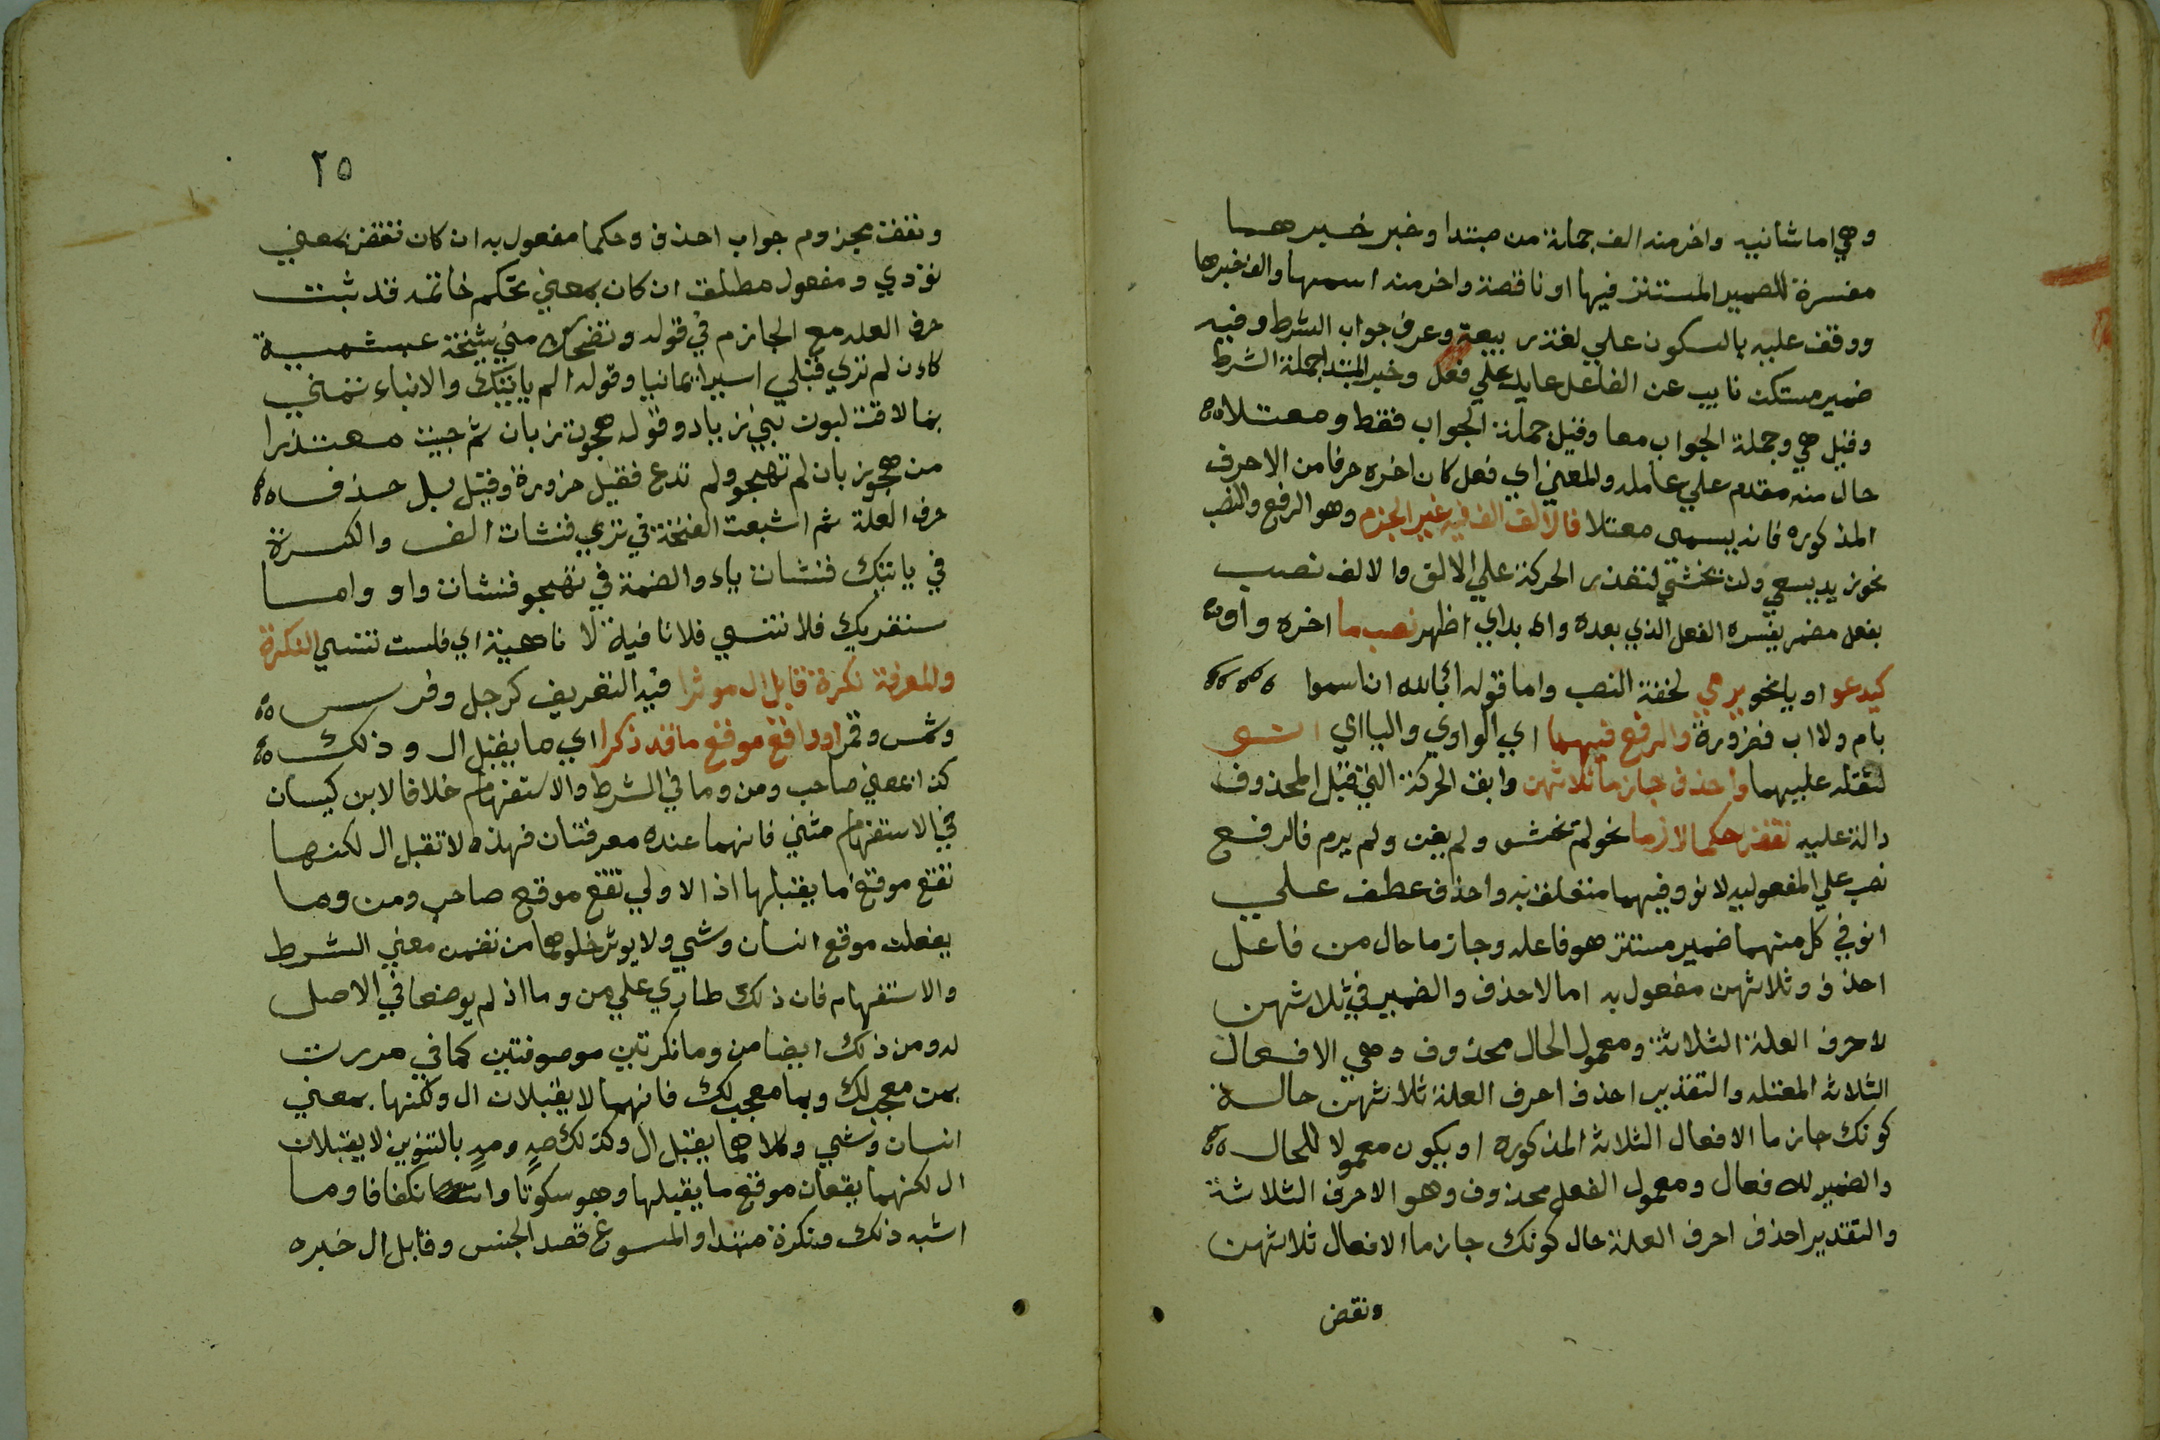 وهي اما شانيه واخر منه الف جملة من مبتدا وخبر خبرهما
مفسرة للضمير المستتر فيها او ناقصة واخر منه اسمها والف خبرها
ووقف عليه بالسكون علي لغة ربيعة وعرف جواب الشرط وفيه
ضمير مستكن نايب عن الفاعل عايد علي فعل وخبر المبتدا جملة الشرط
وقيل هي وجملة الجواب معا وقيل جملة الجواب فقط ومعتلا
حال منه مقدم علي عامله والمعني اي فعل كان اخره حرفا من الاحرف
المذكوره فانه يسمي معتلا فالالف انو فيه غير الجزم وهو الرفع والنصب
نحو زيد يسعي ولن يخشي لتعذر الحركة علي الالف والالف نصب
بفعل مضمر يفسره الفعل الذي بعده وابد اي اظهر نصب ما اخره واو
كيدعو او يا نحو يرمي لخفة النصب واما قوله ابي الله ان اسموا
بام ولا اب فضرورة والرفع فيهما اي الواوي والياءي انو
لثقله عليهما واحذف جازما ثلاثهن وابق الحركة التي قبل المحذوف
دالة عليه تقض حكما لازما نحو لم تخش ولم يغز ولم يرم فالرفع
نصب علي المفعوليه لانو وفيهما متعلق به واحذف عطف علي
انو في كل منهما ضمير مستتر هو فاعله وجازما حال من فاعل
احذف وثلاثهن مفعول به اما لاحذف والضمير في ثلاثهن
لاحرف العلة الثلاثة ومعمول الحال محذوف وهي الافعال
الثلاثه المعتله والتقدير احذف احرف العلة ثلاثهن حالة
كونك جازما الافعال الثلاثه المذكوره او يكون معمولا للحال
والضمير للافعال ومعمول الفعل محذوف وهو الاحرف الثلاثة
والتقدير احذف احرف العلة حال كونك جازما الافعال ثلاثهن
وتقض
٢٥
وتقض مجزوم جواب احذف وحكما مفعول به ان كان تقض بمعني
تؤدي ومفعول مطلق ان كان بمعني تحكم خاتمه قد ثبت
حرف العله مع الجازم في قوله وتضحك مني شيخة عبشمية
كان لم تري قبلي اسيرا يمانيا وقوله الم ياتيك والانباء تنمي
بما لاقت لبون بني زياد وقوله هجوت زبان ثم جيت معتذرا
من هجو زبان لم تهجو ولم تدع فقيل ضرورة وقيل بل حذف
حرف العلة ثم اشبعت الفتحة في تري فنشات الف والكسرة
في ياتيك فنشات ياء والضمة في تهجو فنشات واو واما
سنقريك فلا تنسي فلا نافية لا ناهية اي فلست تنسي النكرة
والمعرفة نكرة قابل ال موثرا فيه التعريف كرجل وفرس
وشمس وقمر او واقع موقع ما قد ذكرا اي ما يقبل ال وذلك
كذا بمعني صاحب ومن وما في الشرط والاستفهام خلافا لابن كيسان
في الاستفهام مثني فانهما عنده معرفتان فهذه لا تقبل ال لكنها
تقع موقع ما يقبلها اذ الاولي تقع موقع صاحب ومن وما
يقعان موقع انسان وشي ولا يوثر خلوهما من تضمن معني الشرط
والاستفهام فان ذلك طاري علي من وما اذ لم يوضعا في الاصل
له ومن ذلك ايضا من وما نكرتين موصوفتين كما في مررت
بمن معجب لك وبما معجب لك فانهما لا يقبلان ال ولكنها بمعني
انسان وشي وكلاهما يقبل ال وكذلك صه ومه بالتنوين لا يقبلان
ال لكنهما يقعان موقع ما يقبلها وهو سكوتا وانكفافا وما
اشبه ذلك فنكرة مبتدا والمسوغ قصد الجنس وقابل ال خبره